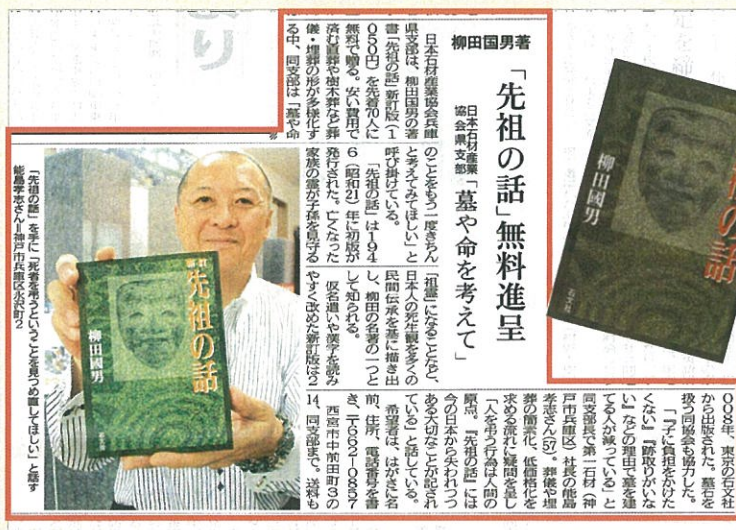 柳田国男著
「先祖の話」無料進呈
日本石材産業
協会県支部
「墓や命を考えて」
日本石材産業協会兵庫
県支部は、柳田国男の著
書「先祖の話」新訂版（1
050円）を先着70人に
無料で贈る。安い費用で
済む直葬や樹木葬など葬
儀・埋葬の形が多様化す
る中、同支部は「墓や命
のことをもう一度きちん
と考えてみてほしい」と
呼び掛けている。
「先祖の話」は194
6（昭和21）年に初版が
発行された。亡くなった
家族の霊が子孫を見守る
「祖霊」になることなど、
日本人の死生観を多くの
民間伝承を基に描き出
し、柳田の名著の一つと
して知られる。
仮名遣いや漢字を読み
やすく改めた新訂版は2
008年、東京の石文社
から出版された。墓石を
扱う同協会も協力した。
「『子に負担をかけた
くない』『跡取りがいな
い』などの理由で墓を建
てる人が減っている」と
同支部長で第一石材（神
戸市兵庫区）社長の能島
孝志さん。葬儀や埋
葬の簡素化、低価格化を
求める流れに疑問を呈し
「人を弔う行為は人間の
原点。『先祖の話』には
今の日本から失われつつ
ある大切なことが記され
ている」と話している。
希望者は、はがきに名
前、住所、電話番号を書
き、〒662-0857
西宮市中前田町3の
14、同支部まで。送料も
「先祖の話」を手に「死者を弔うということを見つめ直してほしい」と話す
能島孝志さん＝神戸市兵庫区水沢町2
新訂
先祖の話
柳田國男
の話
柳田國男
石文社